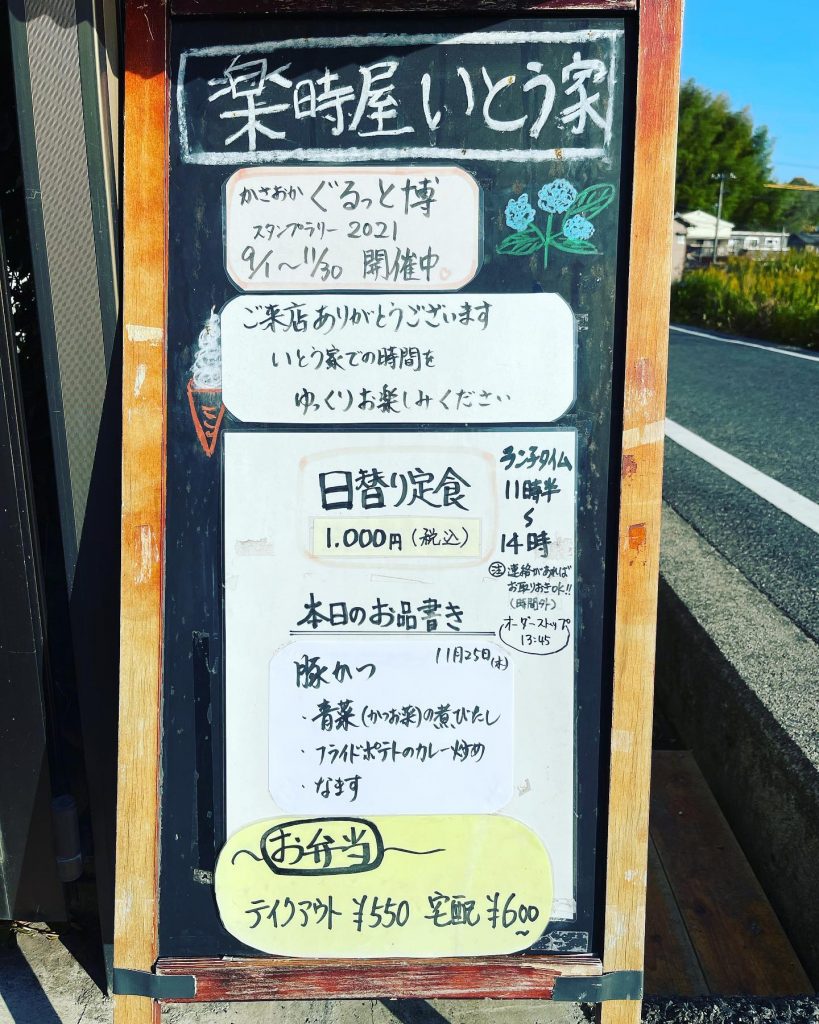 楽時屋 いとう家
かさおか ぐるっと博
スタンプラリー 2021
9/1〜11/30 開催中
ご来店ありがとうございます
いとう家での時間を
ゆっくりお楽しみください
日替り定食
1.000円(税込)
ランチタイム
11時半
〜
14時
注 連絡があれば
お取りおきOK!!
(時間外)
オーダーストップ
13:45
本日のお品書き
11月25日(木)
豚かつ
・青菜(かつお菜)の煮びたし
・フライドポテトのカレー炒め
・なます
〜お弁当〜
テイクアウト ¥550 宅配 ¥600〜